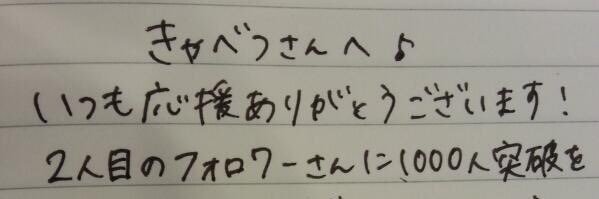 きゃべつさんへ♪
いつも応援ありがとうございます!
2人目のフォロワーさんに1000人突破を